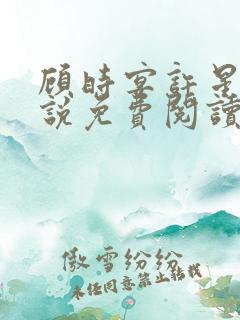 顾时宴许星
說免費閱讀
傲雪纷纷
未经同意禁止转载